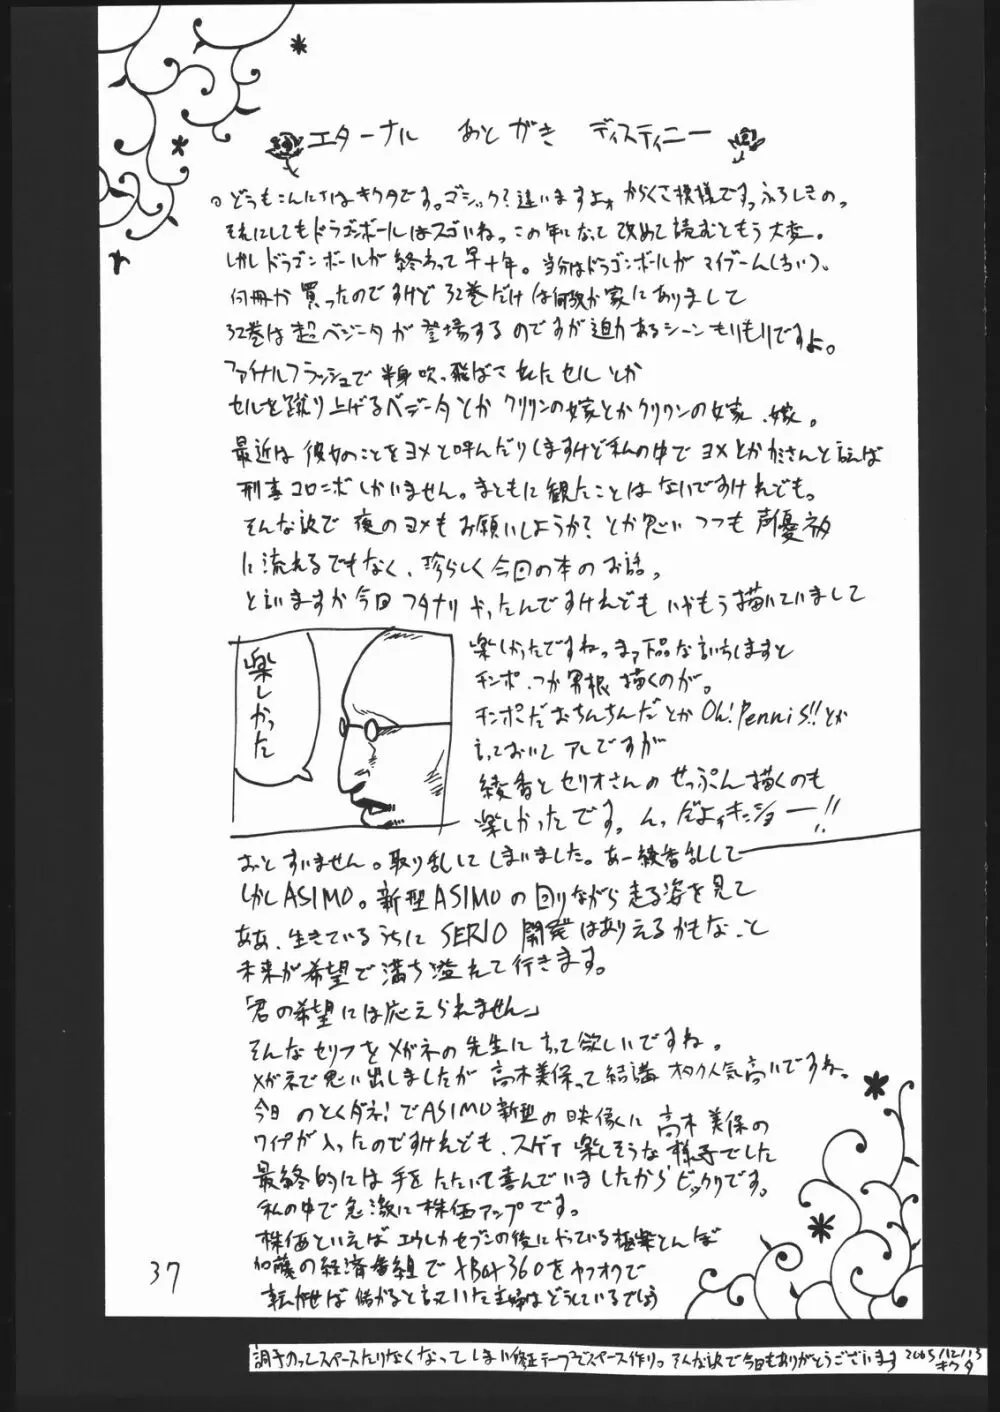 エターナル あとがき ディスティニー
どうもこんにちはキクタです。ゴシック?違いますよォ からくさ模様です。ふろしきの。
それにしてもドラゴンボールはスゴいね。この年になって改めて読むともう大変。
しかしドラゴンボールが終わって早十年。当分はドラゴンボールがマイブーム(ちい)。
何冊か買ったのですけど32巻だけは何故か家にありまして
32巻は超ベジータが登場するのですが迫力あるシーンもりもりですよ。
ファイナルフラッシュで半身吹っ飛ばされたセルとか
セルを蹴り上げるベジータとかクリリンの嫁とかクリリンの嫁、嫁。
最近は彼女のことをヨメと呼んだりしますけど私の中でヨメとかカミさんと言えば
刑事コロンボしかいません。まともに観たことはないですけれども。
そんな訳で夜のヨメもお願いしようか?とか思いつつも声優ネタ
に流れるでもなく、珍らしく今回の本のお話。
と言いますか今回フタナリやったんですけれどもいやもう描いていまして
楽しかった
楽しかったですね。まァ下品な言いしますと
チンポ、つか男根描くのが。
チンポだおちんちんだとかOh! Pennis!!とか
言っておいてアレですが
綾香とセリオさんのせっぷん描くのも
楽しかったです。んっだよォキンショー!!
おっとすいません。取り乱してしまいました。あー綾香乱して
しかしASIMO。新型ASIMOの回りながら走る姿を見て
ああ、生きているうちにSERIO開発はありえるかもな、と
未来が希望で満ち溢れて行きます。
「君の希望には応えられません。」
そんなセリフをメガネの先生に言って欲しいですね。
メガネで思い出しましたが高木美保って結構オタク人気高いですね。
今日のとくダネ!でASIMO新型の映像に高木美保の
ワイプが入ったのですけれども、スゲェ楽しそうな様子でした
最終的には手をたたいて喜んでいましたからビックリです。
私の中で急激に株価アップです。
株価といえばエウレカセブンの後にやっている極楽とんぼ
加藤の経済番組でXBOX360をヤフオクで
転売せば儲かると言っていた主婦はどうしているでしょう
37
調子のってスペースたりなくなってしまい修正テープでスペース作り。そんな訳で今日もありがとうございます 2005/12/13
キクタ